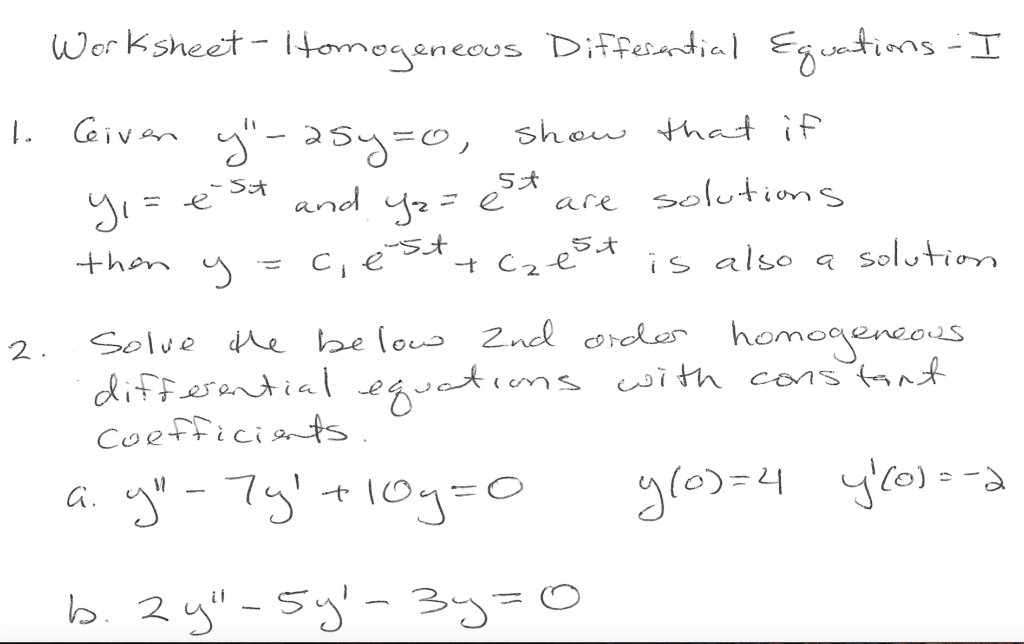 Worksheet - Homogeneous Differential Equations - I
1. Given y" - 25y = 0, show that if
y₁ = e⁻⁵ᵗ and y₂ = e⁵ᵗ are solutions
then y = c₁e⁻⁵ᵗ + c₂e⁵ᵗ is also a solution
2. Solve the below 2nd order homogeneous
differential equations with constant
coefficients.
a. y" - 7y' + 10y = 0 y(0) = 4 y'(0) = -2
b. 2y" - 5y' - 3y = 0